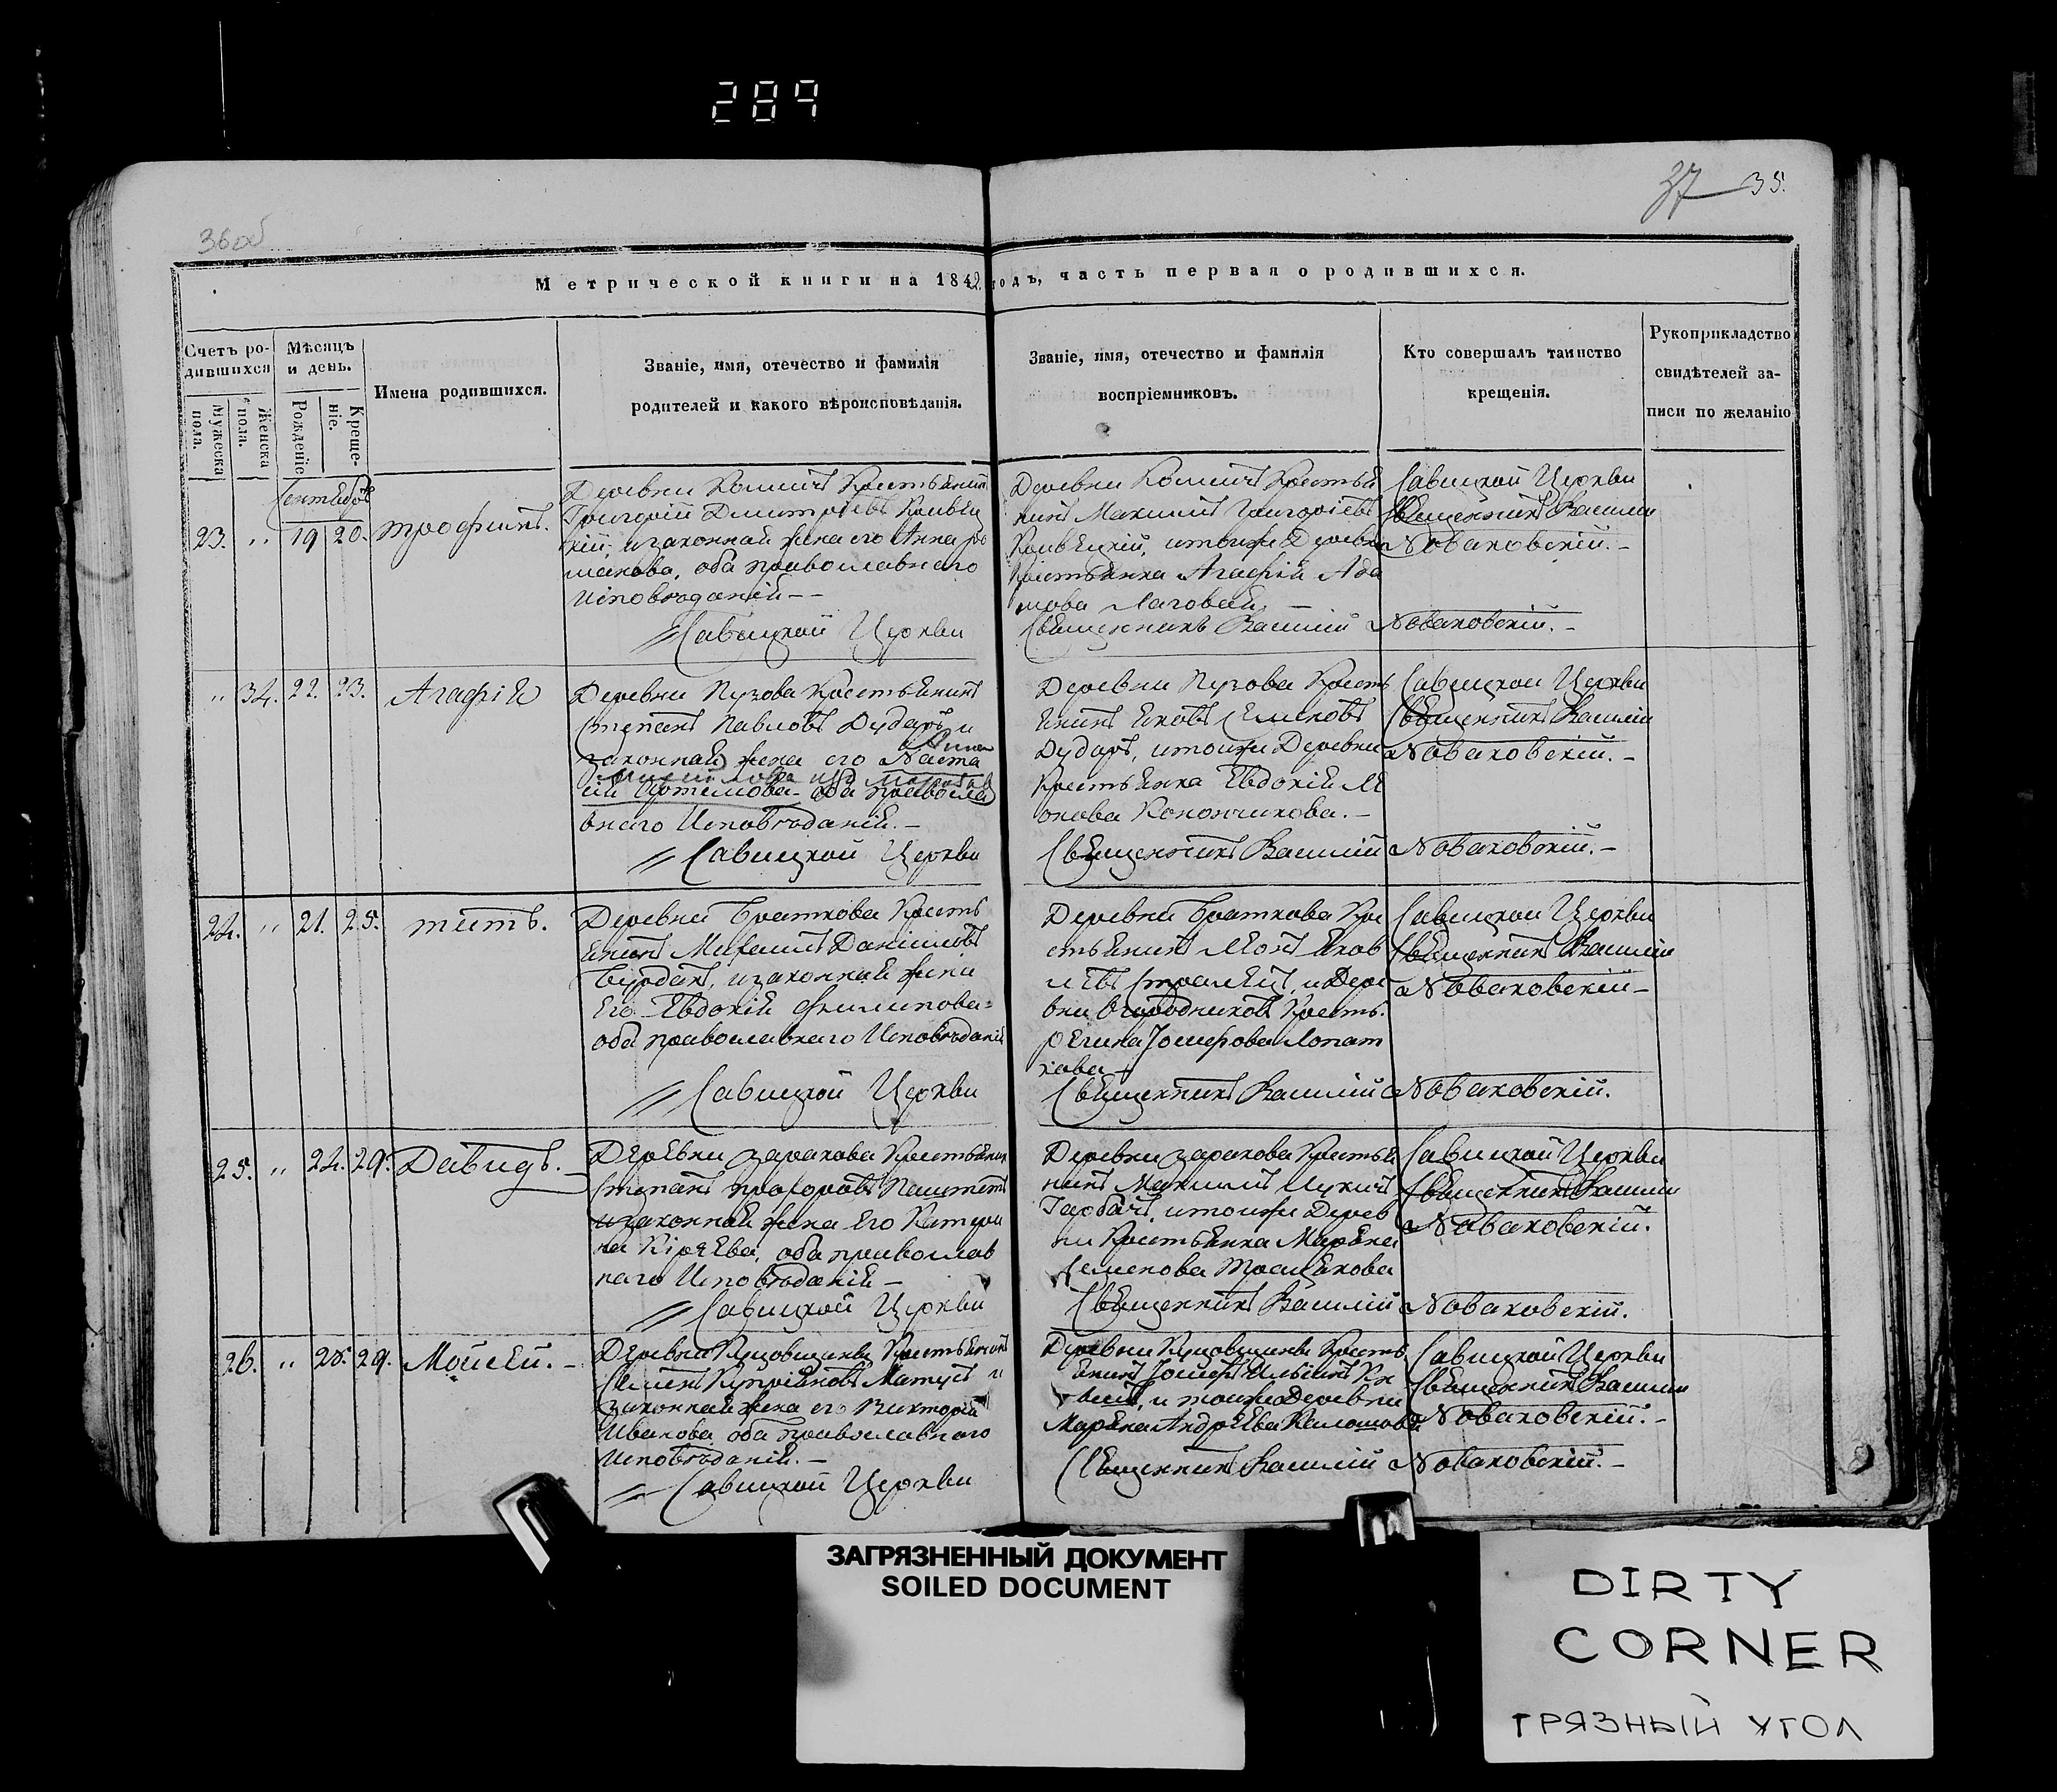 289
36 об
37 35.
Метрической книги на 1842 годъ, часть первая о родившихся.
Счетъ ро-
дившихся
Мужеска
пола.
Женска
пола.
Мѣсяцъ
и день.
Рожденіе
Креще-
ніе.
Имена родившихся.
Званіе, имя, отечество и фамилія
родителей и какого вѣроисповѣданія.
Званіе, имя, отечество и фамилія
воспріемниковъ.
Кто совершалъ таинство
крещенія.
Рукоприкладство
свидѣтелей за-
писи по желанію
Сентябрь
23. „ 19 20. Трофимъ.
Деревни Крестьянинъ
Григорій Дмитріевъ
кій, и законная жена его Анна Ро
манова, оба православнаго
исповѣданія --
// Савицкой Церкви
Деревни Крестья
нинъ Максимъ Григоріевъ
и тойже Деревни
Крестьянка Агафія Ада
мова Лаговая. –
Священникъ Василій Новаковскій. –
Савицкой Церкви
Священникъ Василій
Новаковскій. –
„ 34. 22. 23. Агафія
Деревни Пузова Крестьянинъ
Степанъ Павловъ Дударъ, и
законная жена его Наста
Анна
Артемова – оба православ
внаго Исповѣданія. –
// Савицкой Церкви
Деревни Пузова Кресть
янинъ Яковъ Семеновъ
Дударъ, и тойже Деревни
Крестьянка Евдокія Ле
онова Конончикова. –
Священникъ Василій Новаковскій. –
Савицкой Церкви
Священникъ Василій
Новаковскій. –
24. „ 21. 25. Титъ.
Деревни Браткова Кресть
янинъ Михаилъ Даніиловъ
Бурдакъ, и законная жена
Его Евдокія Филипова =
оба православнаго Исповѣданія
// Савицкой Церкви
Деревни Браткова Кре
стьянинъ Леонъ Яков
левъ Стралецъ, и Дере
вни Огородниковъ Кресть.
Регина Іосифова Лопат
кова –
Священникъ Василій Новаковскій.
Савицкой Церкви
Священникъ Василій
Новаковскій –
25. „ 24. 29. Давидъ. –
Деревни Заракова Крестьянин
Степанъ Прохоровъ
и законная жена Его Катери
на Кірѣева, оба православ
наго Исповѣданія –
// Савицкой Церкви
Деревни Заракова Крестья
нинъ Максимъ Лукинъ
Гарбачъ, и тойже Дерев
ни Крестьянка Маряна
Семенова
Священникъ Василій Новаковскій.
Савицкой Церкви
Священникъ Василій
Новаковскій.
26. „ 28. 29. Мойсей. –
Деревни Крестьянинъ
Семенъ Купріяновъ Матусъ и
законная жена его Викторія
Иванова оба православнаго
Исповѣданія. –
// Савицкой Церкви
Деревни Кресть
янинъ Іосифъ Ильинъ
и тойже Деревни
Маряна Андреева
Священникъ Василій Новаковскій. –
Савицкой Церкви
Священникъ Василій
Новаковскій. –
ЗАГРЯЗНЕННЫЙ ДОКУМЕНТ
SOILED DOCUMENT
DIRTY
CORNER
ГРЯЗНЫЙ УГОЛ